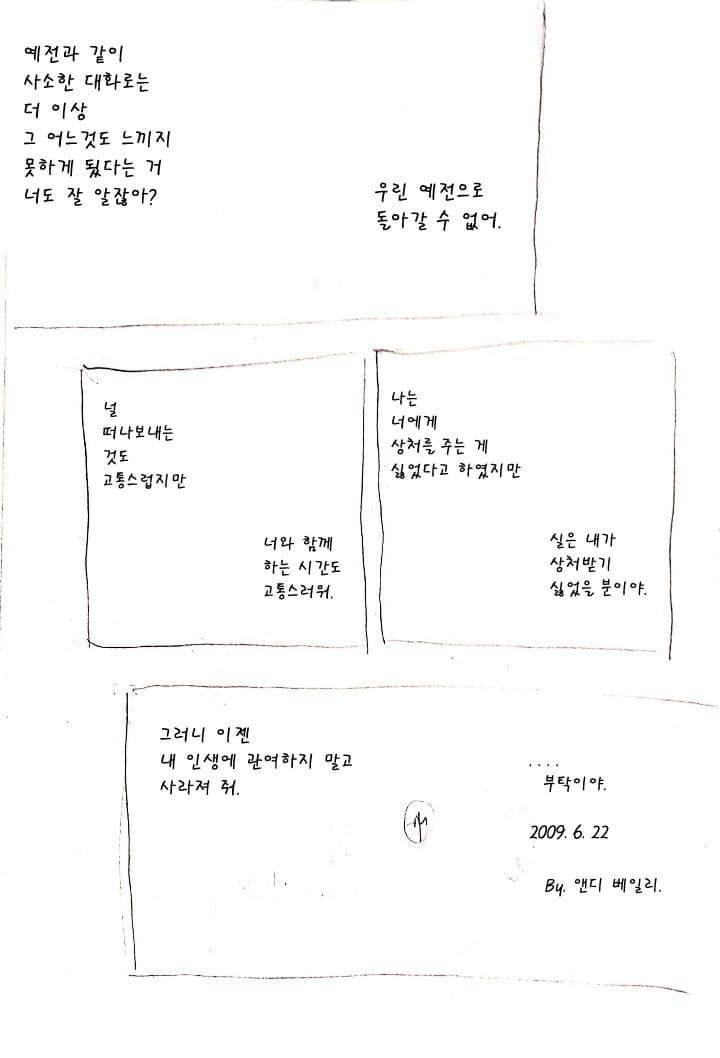 예전과 같이
사소한 대화로는
더 이상
그 어느것도 느끼지
못하게 됬다는 거
너도 잘 알잖아?
우린 예전으로
돌아갈 수 없어.
널
떠나보내는
것도
고통스럽지만
너와 함께
하는 시간도
고통스러워.
나는
너에게
상처를 주는 게
싫었다고 하였지만
실은 내가
상처받기
싫었을 분이야.
그러니 이젠
내 인생에 관여하지 말고
사라져 줘.
....
부탁이야.
2009. 6. 22
By. 앤디 베일리.